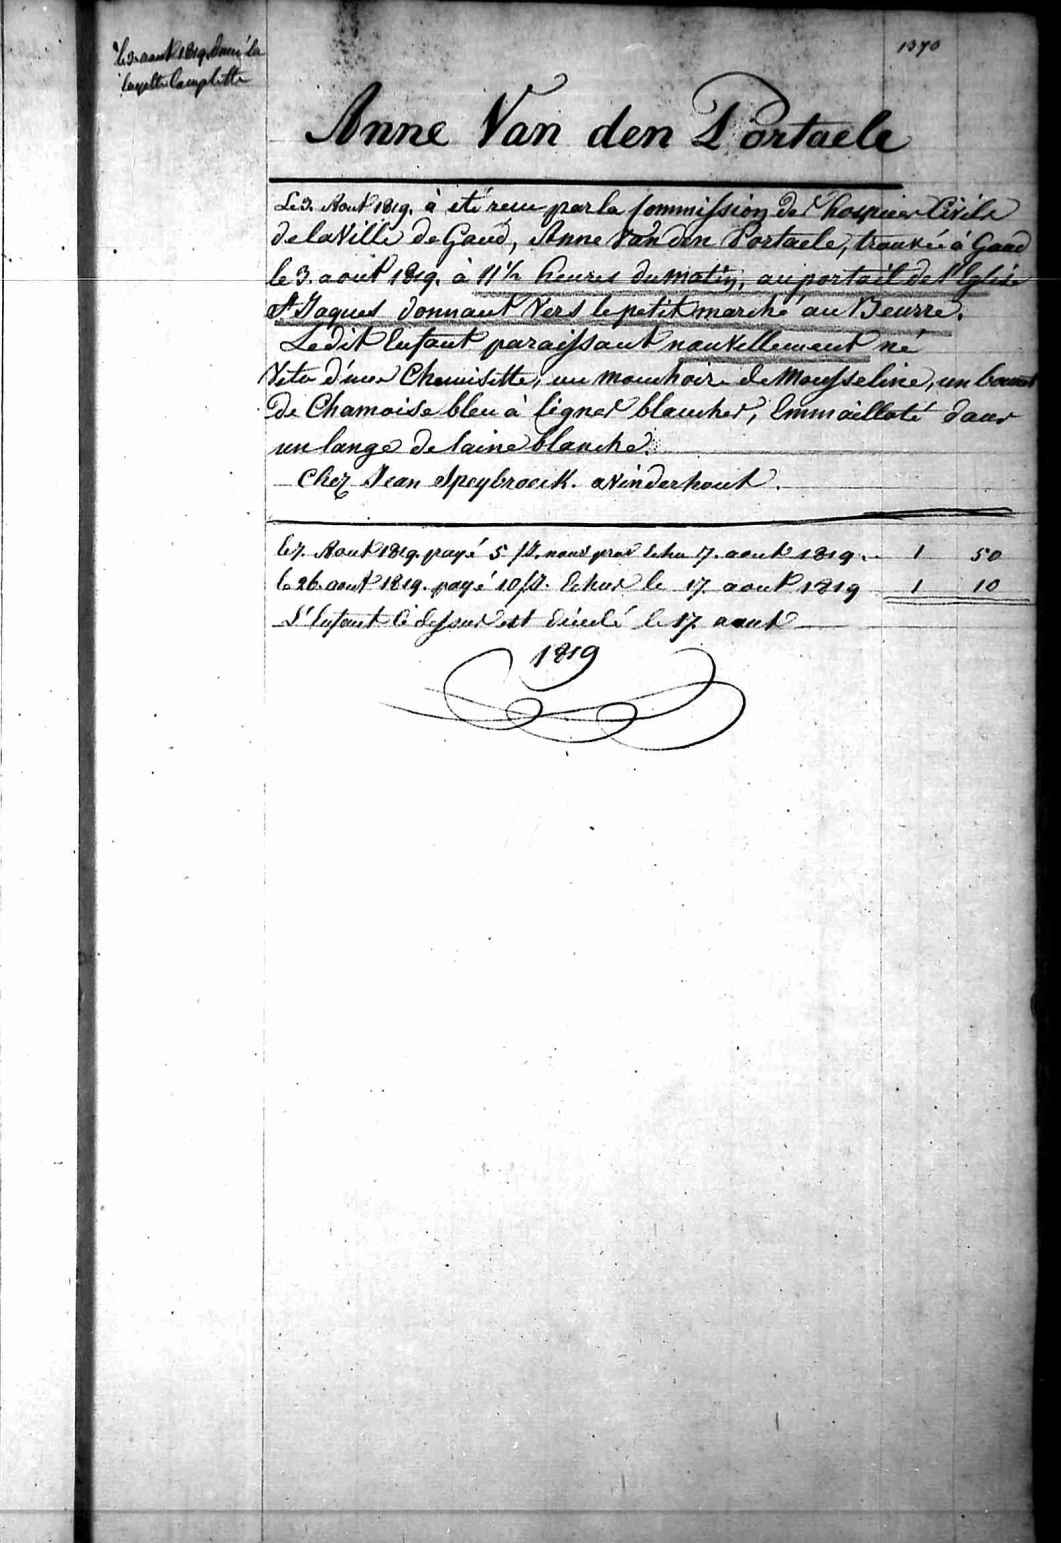 le 3. aout 1819. donné la
layette Complette
1370
Anne Van den Portaele
Le 3. Aout 1819. à été recu par la Commission des hospices Civils
de la Ville de Gand, Anne Van den Portaele, trouvée à Gand
le 3. aout 1819. à 11 1/2 heures du matin, au portail de l'Eglise
St Jaques donnant Vers le petit marché au Beurre.
Ledit Enfant paraissant nouvellement né
Vetu d'une Chemisette, un mouchoir de Mousseline, un bonnet
de Chamoise bleu à lignes blanches, Emmailloté dans
un lange de laine blanche.
Chez Jean Speybroeck. a Vinderhout.
le 7. Aout 1819. payé 5 echu 7. aout 1819. 1 50
le 26 aout 1819. payé 10 Echus le 17 aout 1819 1 10
L'Enfant Ci dessus est décédé le 17. aout
1819